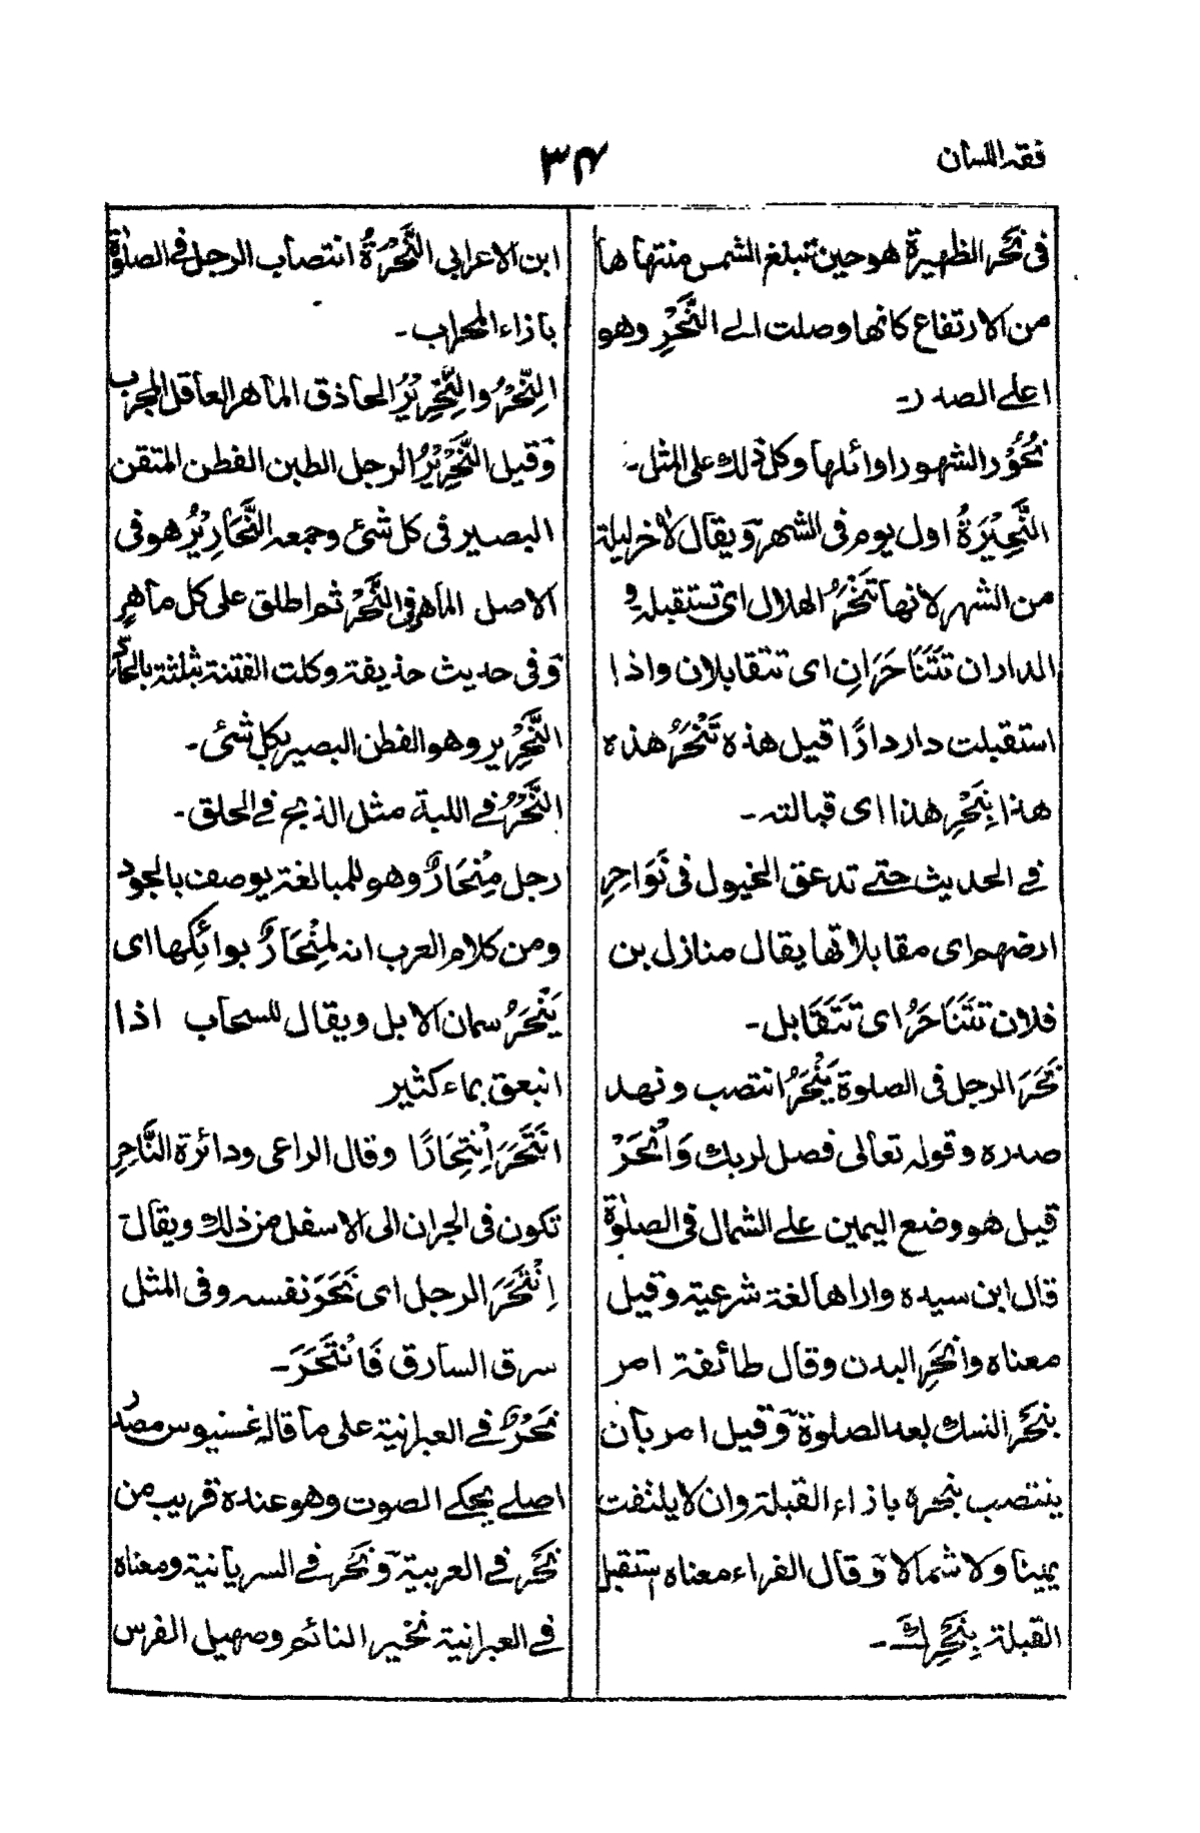 فقه اللسان
٣٤
فى نَحْر الظهيرة هو حين تبلغ الشمس منتهاها
من الارتفاع كانها وصلت الے النَّحْرِ وهو
اعلے الصدر۔
نُحُوْر الشهور اوائلها وكل ذلك على المثل۔
النَّحِيْرَةُ اول يوم فى الشهر ويقال لآخر ليلة
من الشهر لانها تَنْحَرُ الهلال اى تستقبله و
الداران تَتَنَاحَرَانِ اى تتقابلان واذا
استقبلت دار دارًا قيل هذه تَنْحَرُ هذه
هذا بِنَحْرِ هذا اى قبالته۔
فے الحديث حتے تدعق الخيول فى نَوَاحِرِ
ارضهم اى مقابلاتها يقال منازل بن
فلان تتَنَاحَرُ اى تَتَقَابل۔
نَحَرَ الرجل فى الصلوة يَنْحَرُ انتصب ونهد
صدره وقوله تعالى فصل لربك وَانْحَرْ
قيل هو وضع اليمين علے الشمال فى الصلوٰة
قال ابن سيده واراها لغة شرعية وقيل
معناه وانْحَرِ البدن وقال طائفة امر
بنَحْر النسك بعد الصلوة وقيل امر بان
ينتصب بنحره بازاء القبلة وان لا يلتفت
يمينا ولا شمالا وقال الفراء معناه استقبل
القبلة بِنَحْرِك۔
ابن الاعرابى النَّحْرَةُ انتصاب الرجل فى الصلوٰة
بازاء المحراب۔
النِّحْرُ والنِّحْرِيْرُ الحاذق الماهر العاقل المجرب
وقيل النِّحْرِيْرُ الرجل الطبن الفطن المتقن
البصير فى كل شئ وجمعه النَّحَارِيْرُ هو فى
الاصل الماهر فى النَّحْر ثم اطلق على كل ماهرٍ
وفى حديث حذيفة وكلت الفتنة بثلثة بالحادّ
النِّحْرِير وهو الفطن البصير بكل شئ۔
النَّحْرُ فے اللبة مثل الذبح فے الحلق۔
رجل مِنْحَارٌ وهو للمبالغة يوصف بالجود
ومن كلام العرب انه لمِنْحَارٌ بوائِكها اى
يَنْحَرُ سمان الابل ويقال للسحاب اذا
انبعق بماء كثير
انتَحَرَ اِنْتِحَارًا وقال الراعى ودائرة النَّاحِرِ
تكون فى الجران الى الاسفل من ذلك ويقال
اِنْتَحَرَ الرجل اى نَحَرَ نفسه وفى المثل
سرق السارق فَانْتَحَرَ۔
نَحَرٌ فے العبرانية على ما قاله غسنيوس مصدر
اصلے يحكے الصوت وهو عنده قريب من
نَخَر فے العربية ونَخَر فے السريانية ومعناه
فے العبرانية نخير النائم وصهيل الفرس